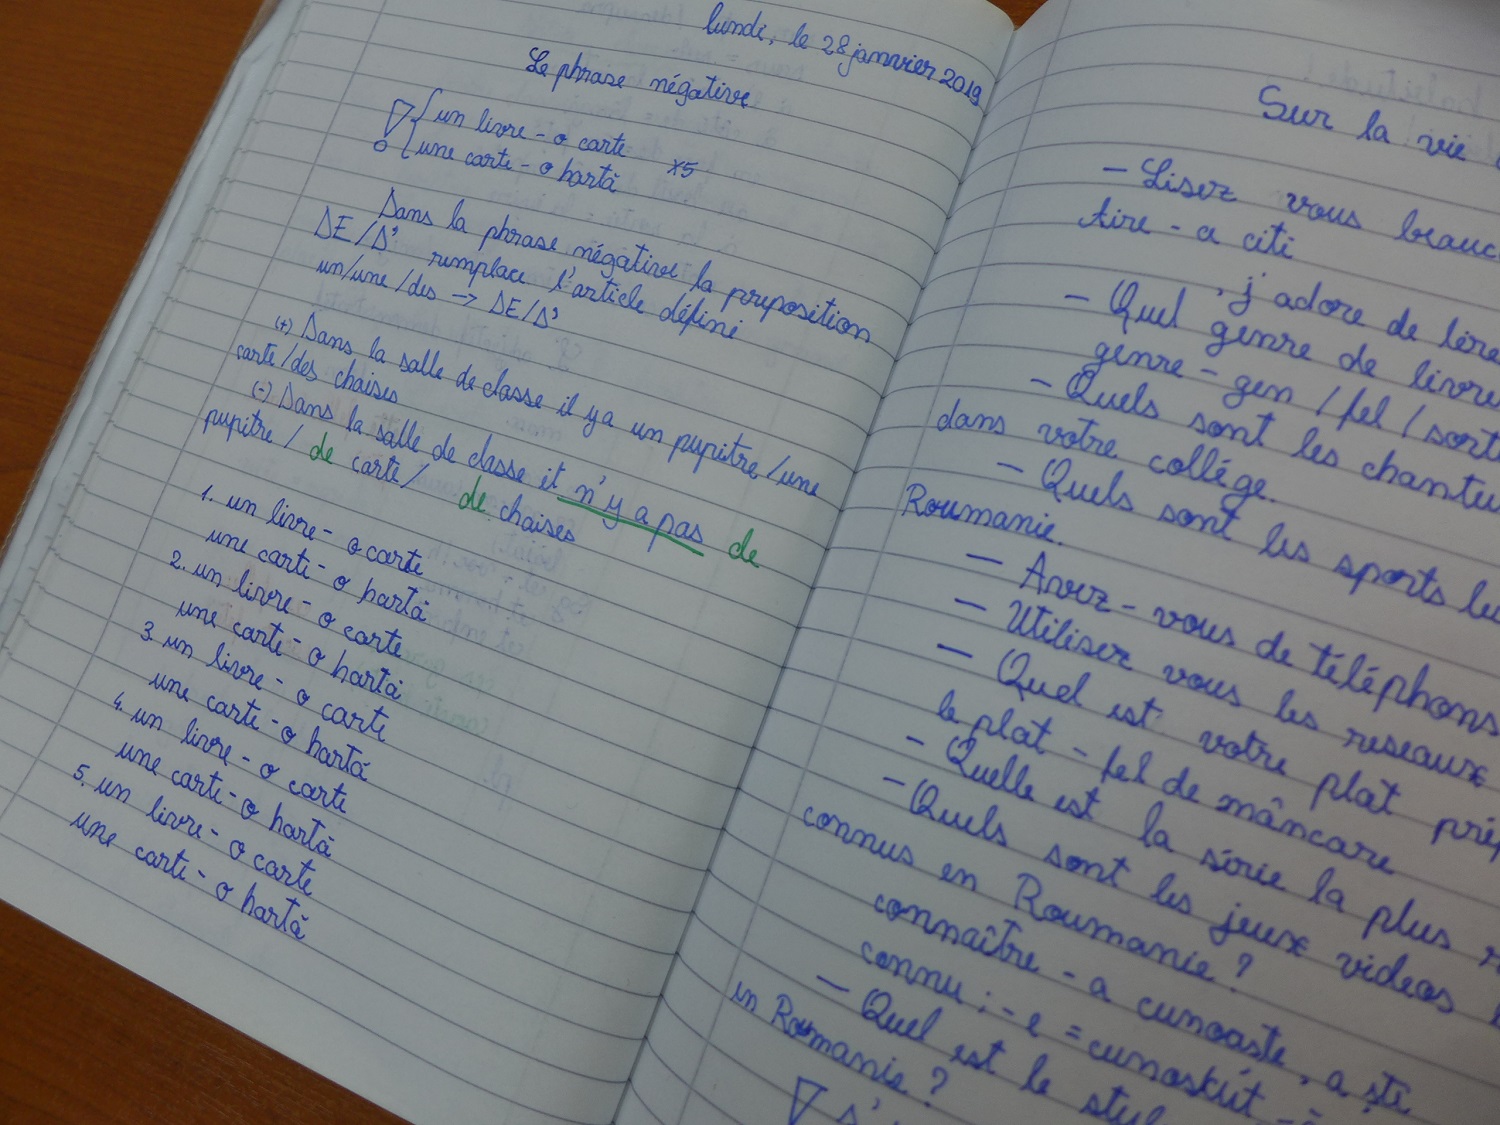 lundi, le 28 janvier 2019
Le phrase négative
un livre - o carte
une carte - o hartă x5
Dans la phrase négative la preposition
DE/D' remplace l'article défini
un/une/des → DE/D'
(+) Dans la salle de classe il y a un pupitre/une
carte/des chaises
(-) Dans la salle de classe il n'y a pas de
pupitre / de carte / de chaises
1. un livre - o carte
une carte - o hartă
2. un livre - o carte
une carte - o hartă
3. un livre - o carte
une carte - o hartă
4. un livre - o carte
une carte - o hartă
5. un livre - o carte
une carte - o hartă
Sur la vie
- Lisez vous
lire - a citi
, j'adore de lire
- Quel genre de
genre - gen / fel /
- Quels sont les
dans votre collége.
- Quels sont les sports
Roumanie.
- Avez-vous de
- Utilisez vous les reseaux
- Quel est votre plat
le plat - fel de mâncare
- Quelle est la série la plus
- Quels sont les jeux videos
connus en Roumanie ?
connaître - a cunoaște, a ști
connu; -e = cunoscut
- Quel est le
en Roumanie ?